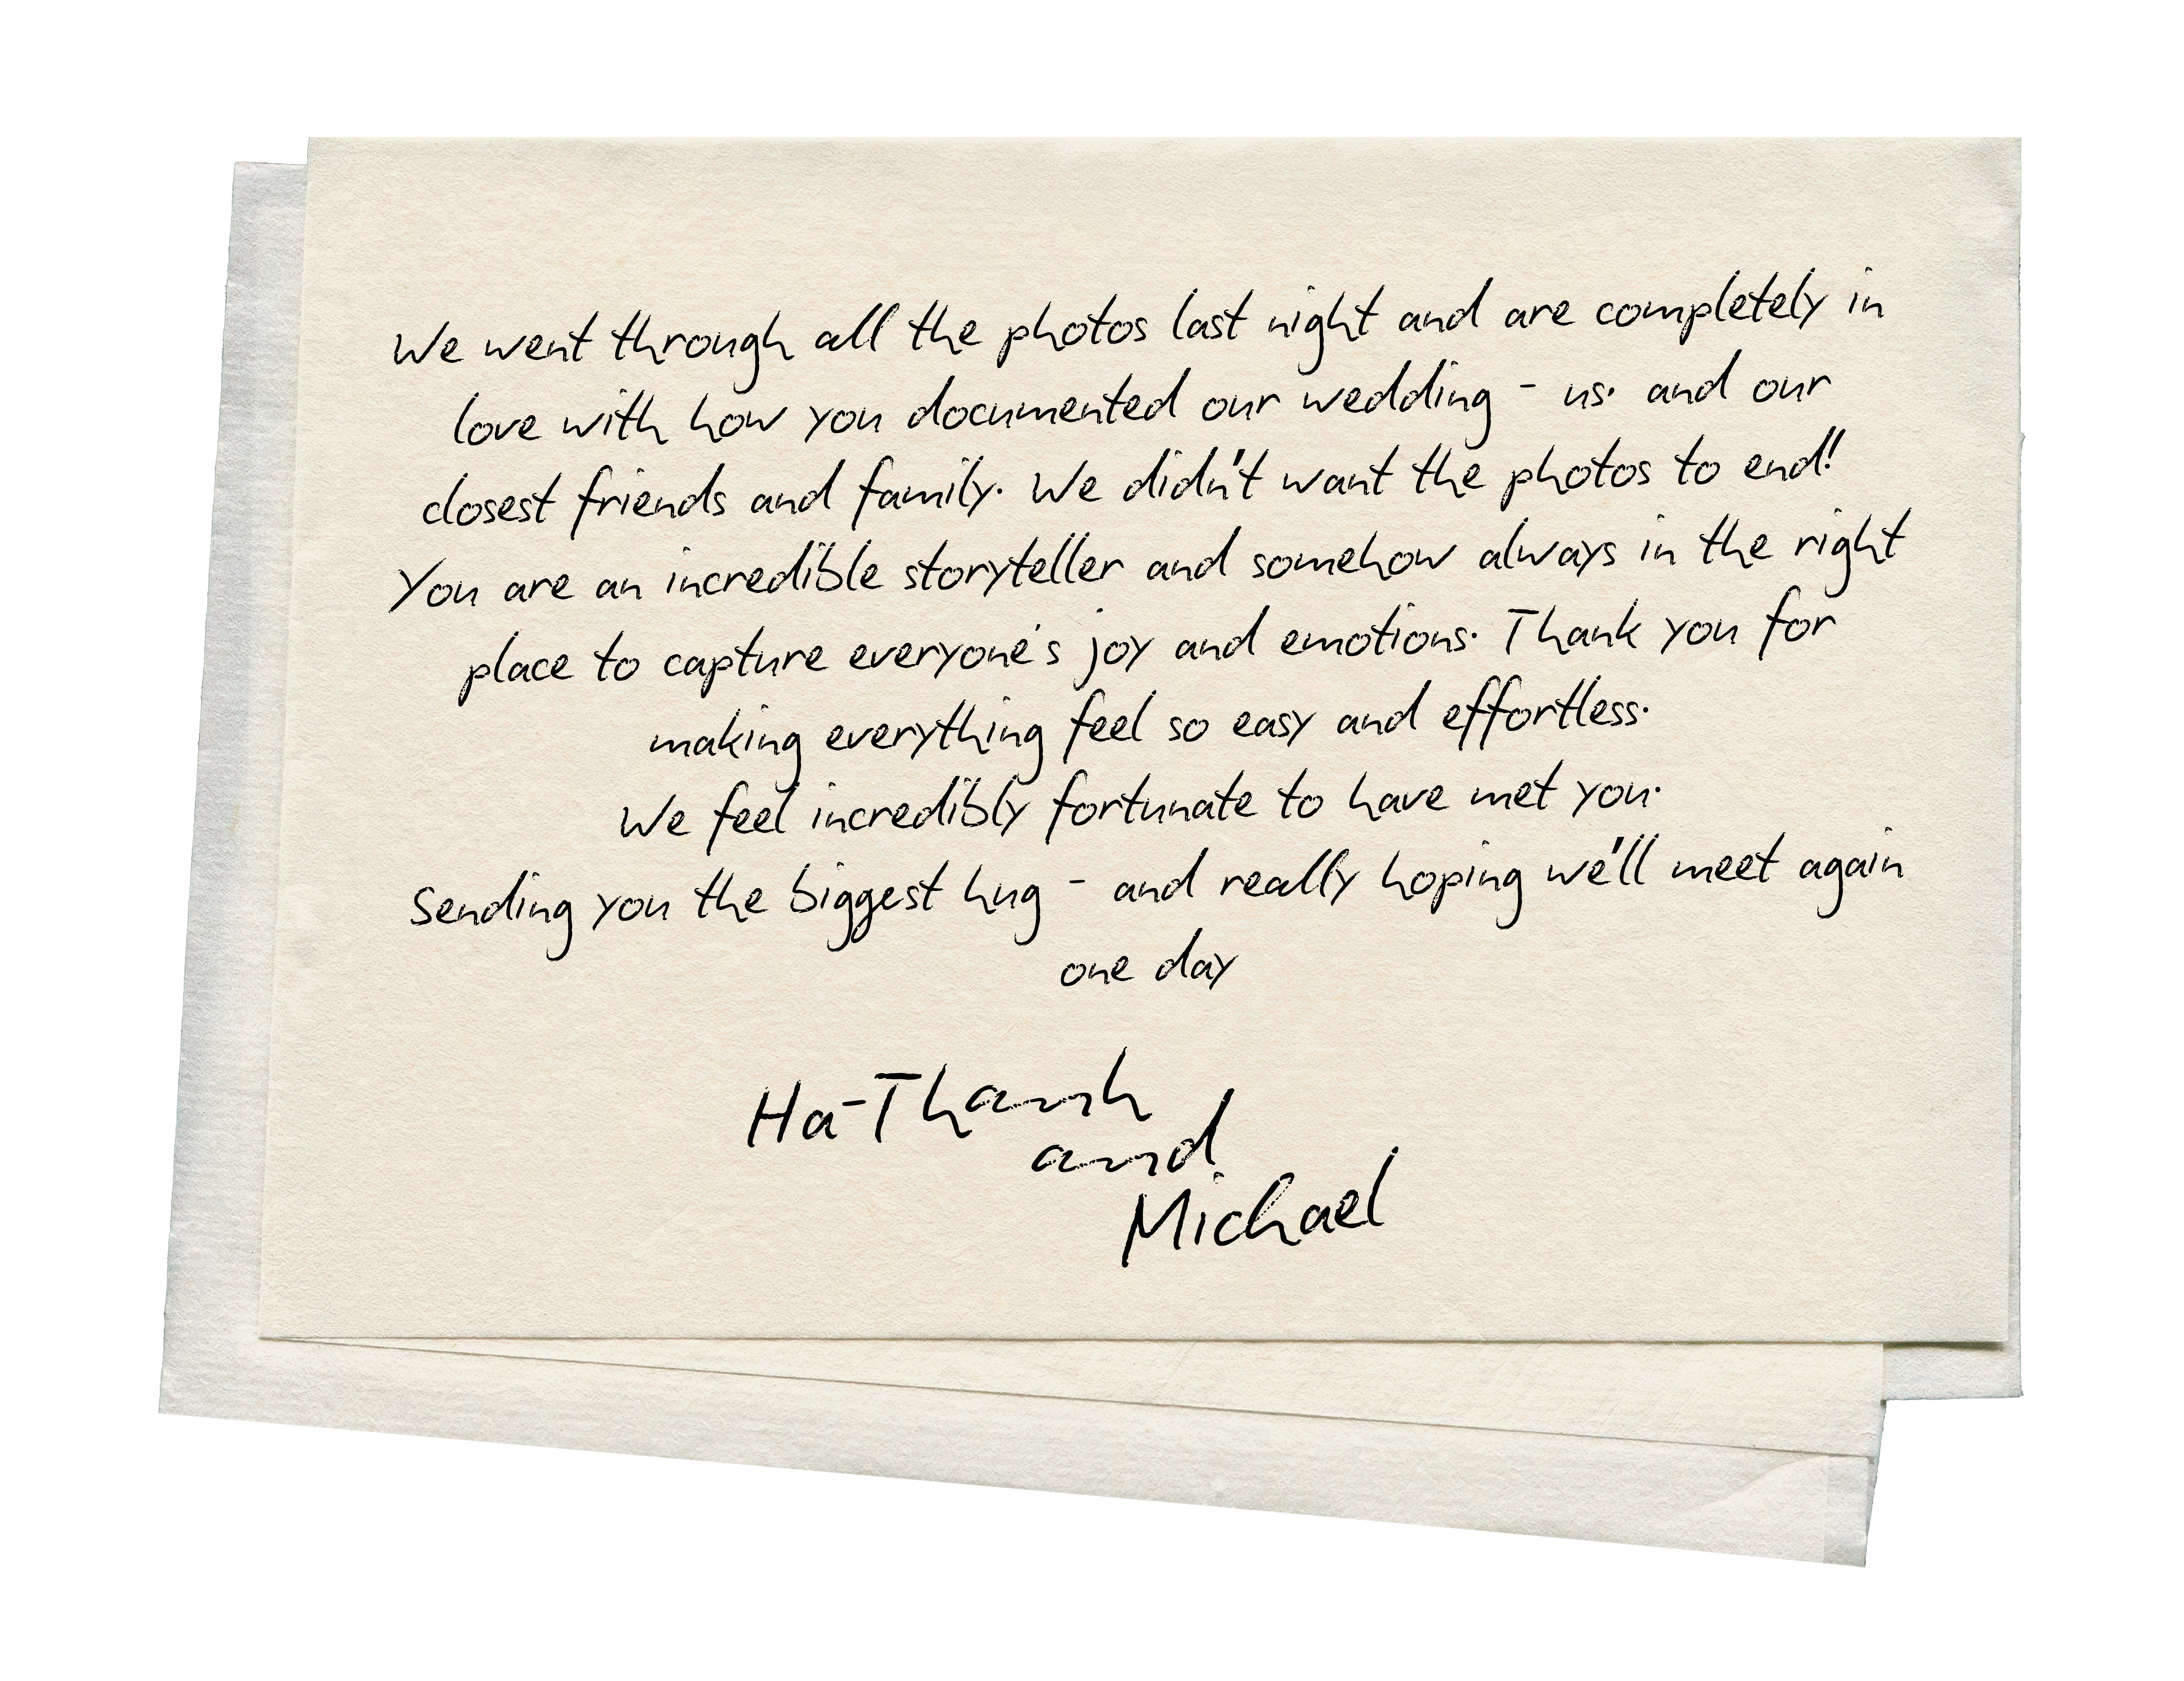 We went through all the photos last night and are completely in
love with how you documented our wedding - us. and our
closest friends and family. We didn't want the photos to end!
You are an incredible storyteller and somehow always in the right
place to capture everyone's joy and emotions. Thank you for
making everything feel so easy and effortless.
We feel incredibly fortunate to have met you.
Sending you the biggest hug - and really hoping we'll meet again
one day
Ha-Thanh
and
Michael